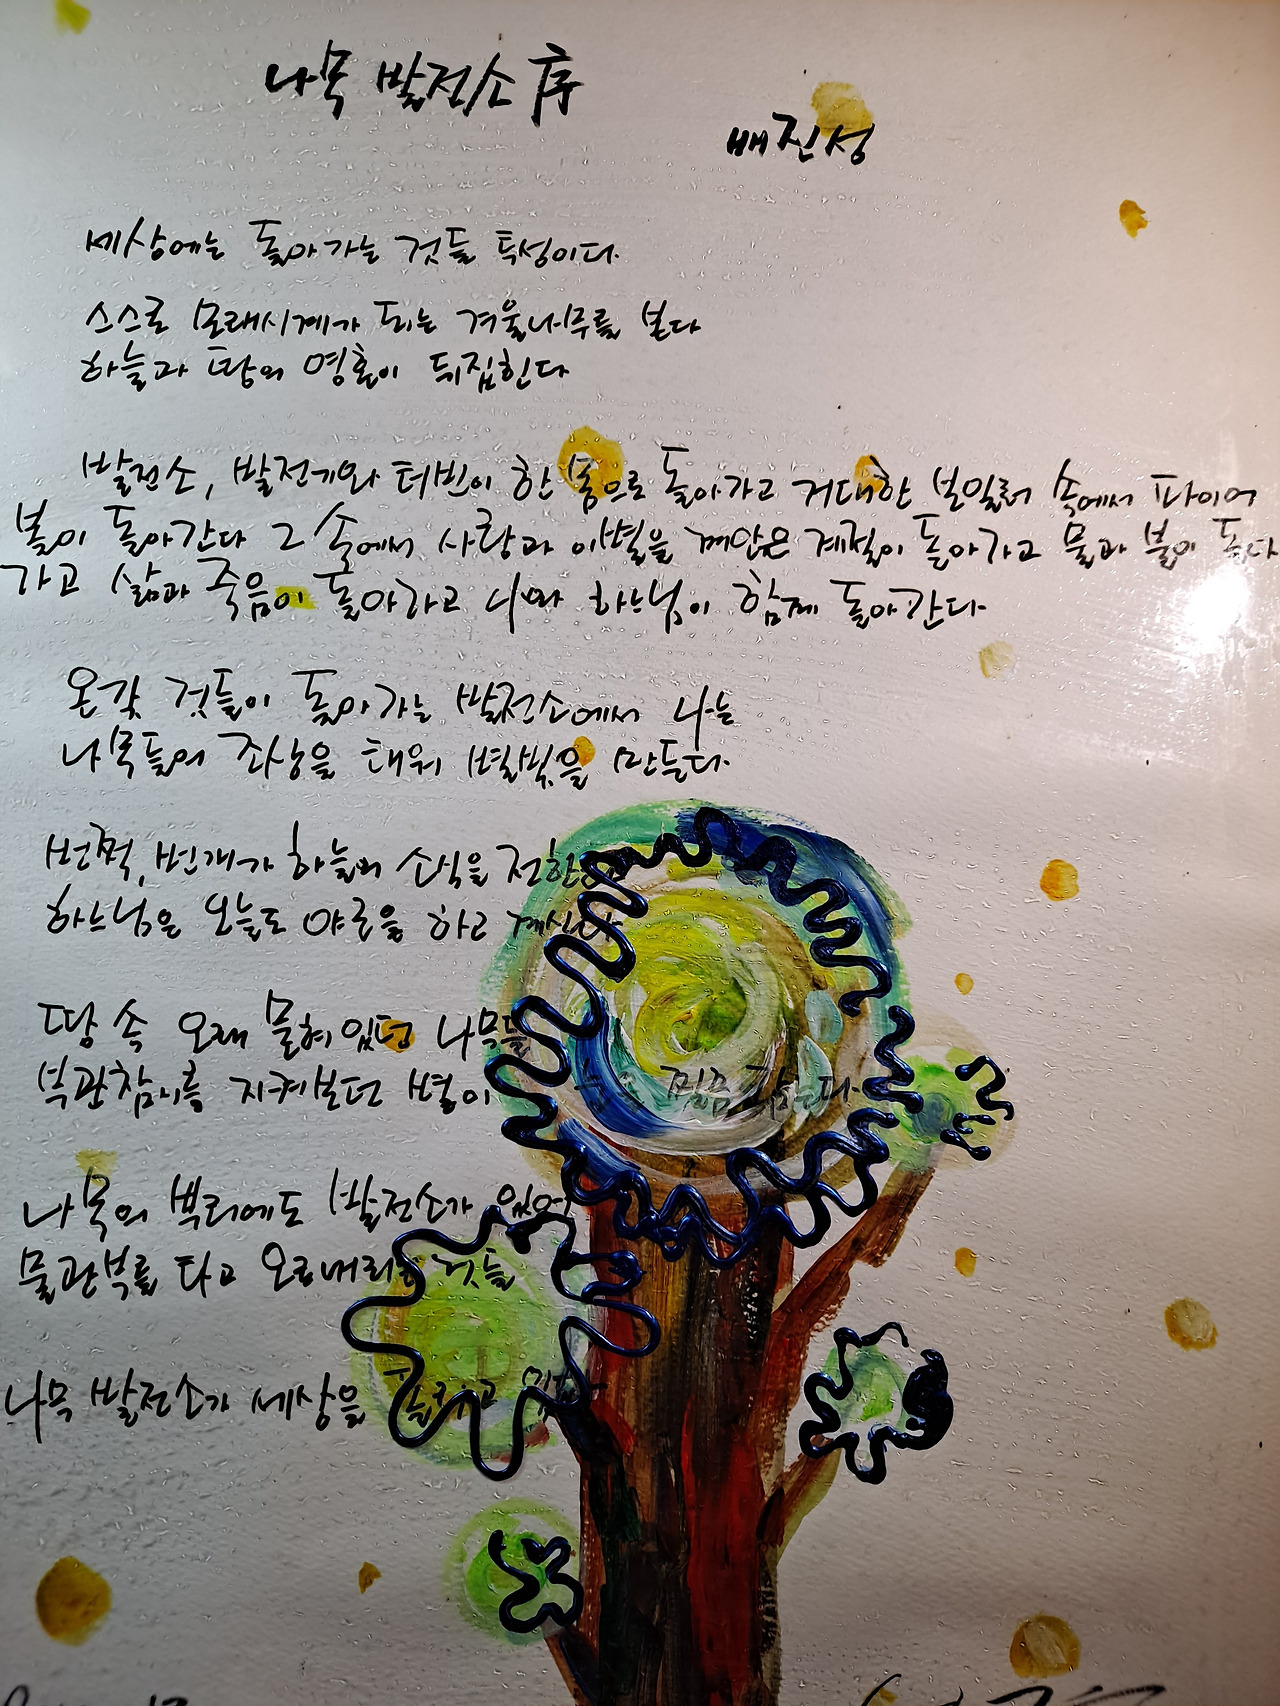 나무 발전소 序
배진성
세상에는 돌아가는 것들 투성이다
스스로 모래시계가 되는 겨울나무를 본다
하늘과 땅의 영혼이 뒤집힌다
발전소, 발전기와 터빈이 한 몸으로 돌아가고 거대한 보일러 속에서 파이어
볼이 돌아간다 그 속에서 사랑과 이별을 껴안은 계절이 돌아가고 물과 불이 돌아
가고 삶과 죽음이 돌아가고 나와 하느님이 함께 돌아간다
온갖 것들이 돌아가는 발전소에서 나는
나무들의 좌상을 태워 별빛을 만든다
번쩍, 번개가 하늘의 소식을 전한다
하느님은 오늘도 야근을 하고 계신다
땅 속 오래 묻혀 있던 나무들
부관참시를 지켜보던 별이 눈을 질끈 감는다
나무의 뿌리에도 발전소가 있어
물관부를 타고 오르내리는 것들
나무 발전소가 세상을 돌리고 있다